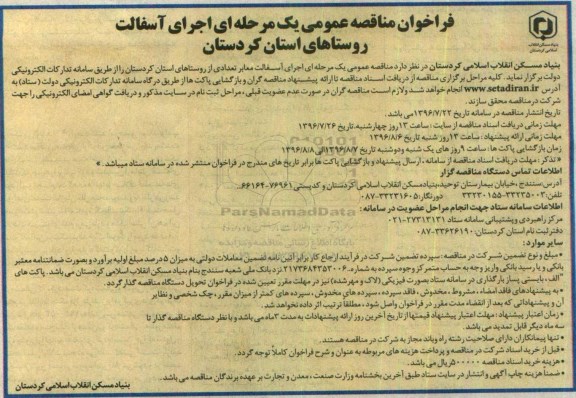 فراخوان مناقصه عمومی یک مرحله ای اجرای آسفالت
روستاهای استان کردستان
بنیاد مسکن انقلاب اسلامی کردستان
بنیاد مسکن انقلاب اسلامی کردستان در نظر دارد مناقصه عمومی یک مرحله ای اجرای آسفالت معابر تعدادی از روستاهای استان کردستان را از طریق سامانه تدارکات الکترونیکی
دولت برگزار نماید. کلیه مراحل برگزاری مناقصه از دریافت اسناد مناقصه تا ارائه پیشنهاد مناقصه گران و بازگشایی پاکت ها از طریق درگاه سامانه تدارکات الکترونیکی دولت (ستاد) به
آدرس www.setadiran.ir انجام خواهد شد و لازم است مناقصه گران در صورت عدم عضویت قبلی، مراحل ثبت نام در سایت مذکور و دریافت گواهی امضای الکترونیکی را جهت
شرکت در مناقصه محقق سازند.
تاریخ انتشار مناقصه در سامانه تاریخ ۱۳۹۶/۷/۲۲ می باشد.
مهلت زمانی دریافت اسناد مناقصه از سایت: ساعت ۱۳ روز چهارشنبه تاریخ ۱۳۹۶/۷/۲۶
مهلت زمانی ارائه پیشنهاد: ساعت ۱۳ روز شنبه تاریخ ۱۳۹۶/۸/۶
زمان بازگشایی پاکت ها: ساعت ۹ روز های یک شنبه و دوشنبه تاریخ ۱۳۹۶/۸/۷ الی ۱۳۹۶/۸/۸
«تذکر: مهلت دریافت اسناد مناقصه از سامانه، ارسال پیشنهاد و بازگشایی پاکت ها برابر تاریخ های مندرج در فراخوان منتشر شده در سامانه ستاد میباشد.»
اطلاعات تماس دستگاه مناقصه گزار
آدرس: سنندج، خیابان بیمارستان توحید، بنیاد مسکن انقلاب اسلامی کردستان و کدپستی ۷۶۹۶۱-۶۶۱۶۴
تلفن: ۳۳۲۳۵۰۰۳-۳۳۲۳۰۱۵۵ دورنگار: ۳۳۲۳۱۶۰۵-۰۸۷
اطلاعات سامانه ستاد جهت انجام مراحل عضویت در سامانه:
مرکز راهبردی و پشتیبانی سامانه ستاد ۲۷۳۱۳۱۳۱-۰۲۱
دفتر ثبت نام استان کردستان: ۳۳۶۲۶۱۹۰-۰۸۷
سایر موارد:
• مبلغ و نوع تضمین شرکت در مناقصه: سپرده تضمین شرکت در فرآیند ارجاع کار برابر آئین نامه تضمین معاملات دولتی به میزان ۵ درصد مبلغ اولیه برآورد و بصورت ضمانتنامه معتبر
بانکی و یا رسید بانکی واریز وجه به حساب متمرکز وجوه سپرده به شماره ۲۱۷۳۶۸۴۳۵۳۰۰۶ نزد بانک ملی شعبه سنندج بنام بنیاد مسکن انقلاب اسلامی کردستان می باشد. پاکت های
"الف"، بایستی پساز بارگذاری در سامانه ستاد بصورت فیزیکی (لاک و مهرشده) نیز در مهلت مقرر تعیین شده در فراخوان تحویل دستگاه مناقصه گذار گردد.
• به پیشنهادهای فاقد امضاء، مشروط، مخدوش، فاقد سپرده، سپرده های مخدوش، سپرده های کمتر از میزان مقرر، چک شخصی و نظایر
آن و پیشنهاداتی که بعد از انقضاء مدت مقرر در فراخوان واصل شود، مطلقا ترتیب اثر داده نخواهد شد.
• زمان اعتبار پیشنهاد: مهلت اعتبار پیشنهاد قیمتها از تاریخ آخرین روز ارائه پیشنهادات به مدت ۳ ماه می باشد و با نظر دستگاه مناقصه گذار تا
سه ماه دیگر قابل تمدید می باشد.
• تنها پیمانکاران دارای صلاحیت رشته راه و باند مجاز به شرکت در مناقصه هستند.
• قبل از خرید اسناد شرکت در مناقصه و پرداخت هزینه های مربوطه به عنوان و شرح فراخوان کاملاً توجه گردد.
• هزینه خرید اسناد مناقصه ۵۰۰۰۰۰ ریال می باشد.
• ضمناً هزینه چاپ آگهی و انتشار در سایت ستاد طبق آخرین بخشنامه وزارت صنعت، معدن و تجارت بر عهده برندگان مناقصه می باشد.
بنیاد مسکن انقلاب اسلامی کردستان
ParsNamadData